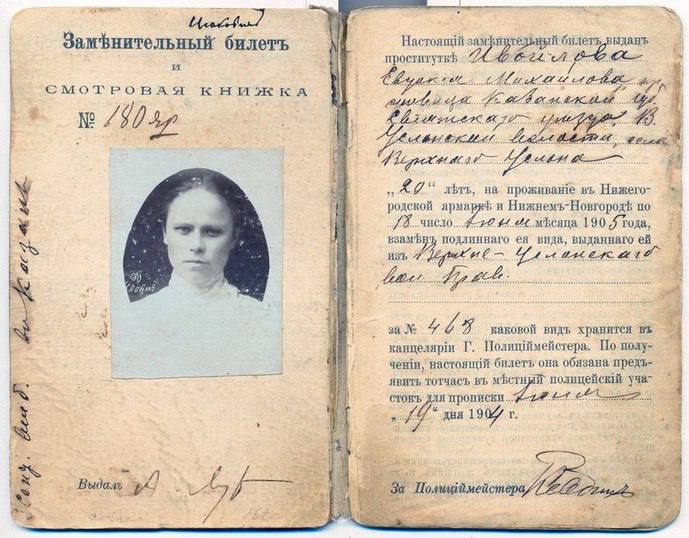 Замѣнительный билетъ
и
СМОТРОВАЯ КНИЖКА
№ 180 яр
Выдалъ
въ Казань
Настоящій замѣнительный билетъ выданъ
проституткѣ Ивойлова
Евдокія Михайлова
Казанской губ.
уѣзда, В.
Услонской волости, села
Верхняго Услона
„20“ лѣтъ, на проживаніе въ Нижего-
родской ярмаркѣ и Нижнемъ-Новгородѣ по
18 число Іюня мѣсяца 1905 года,
взамѣнъ подлиннаго ея вида, выданнаго ей
изъ Верхне-Услонскаго
вол. Прав.
за № 468 каковой видъ хранится въ
канцеляріи Г. Полиціймейстера. По полу-
ченіи, настоящій билетъ она обязана предъ-
явить тотчасъ въ мѣстный полицейскій уча-
стокъ для прописки Іюня
„19“ дня 1904 г.
За Полиціймейстера